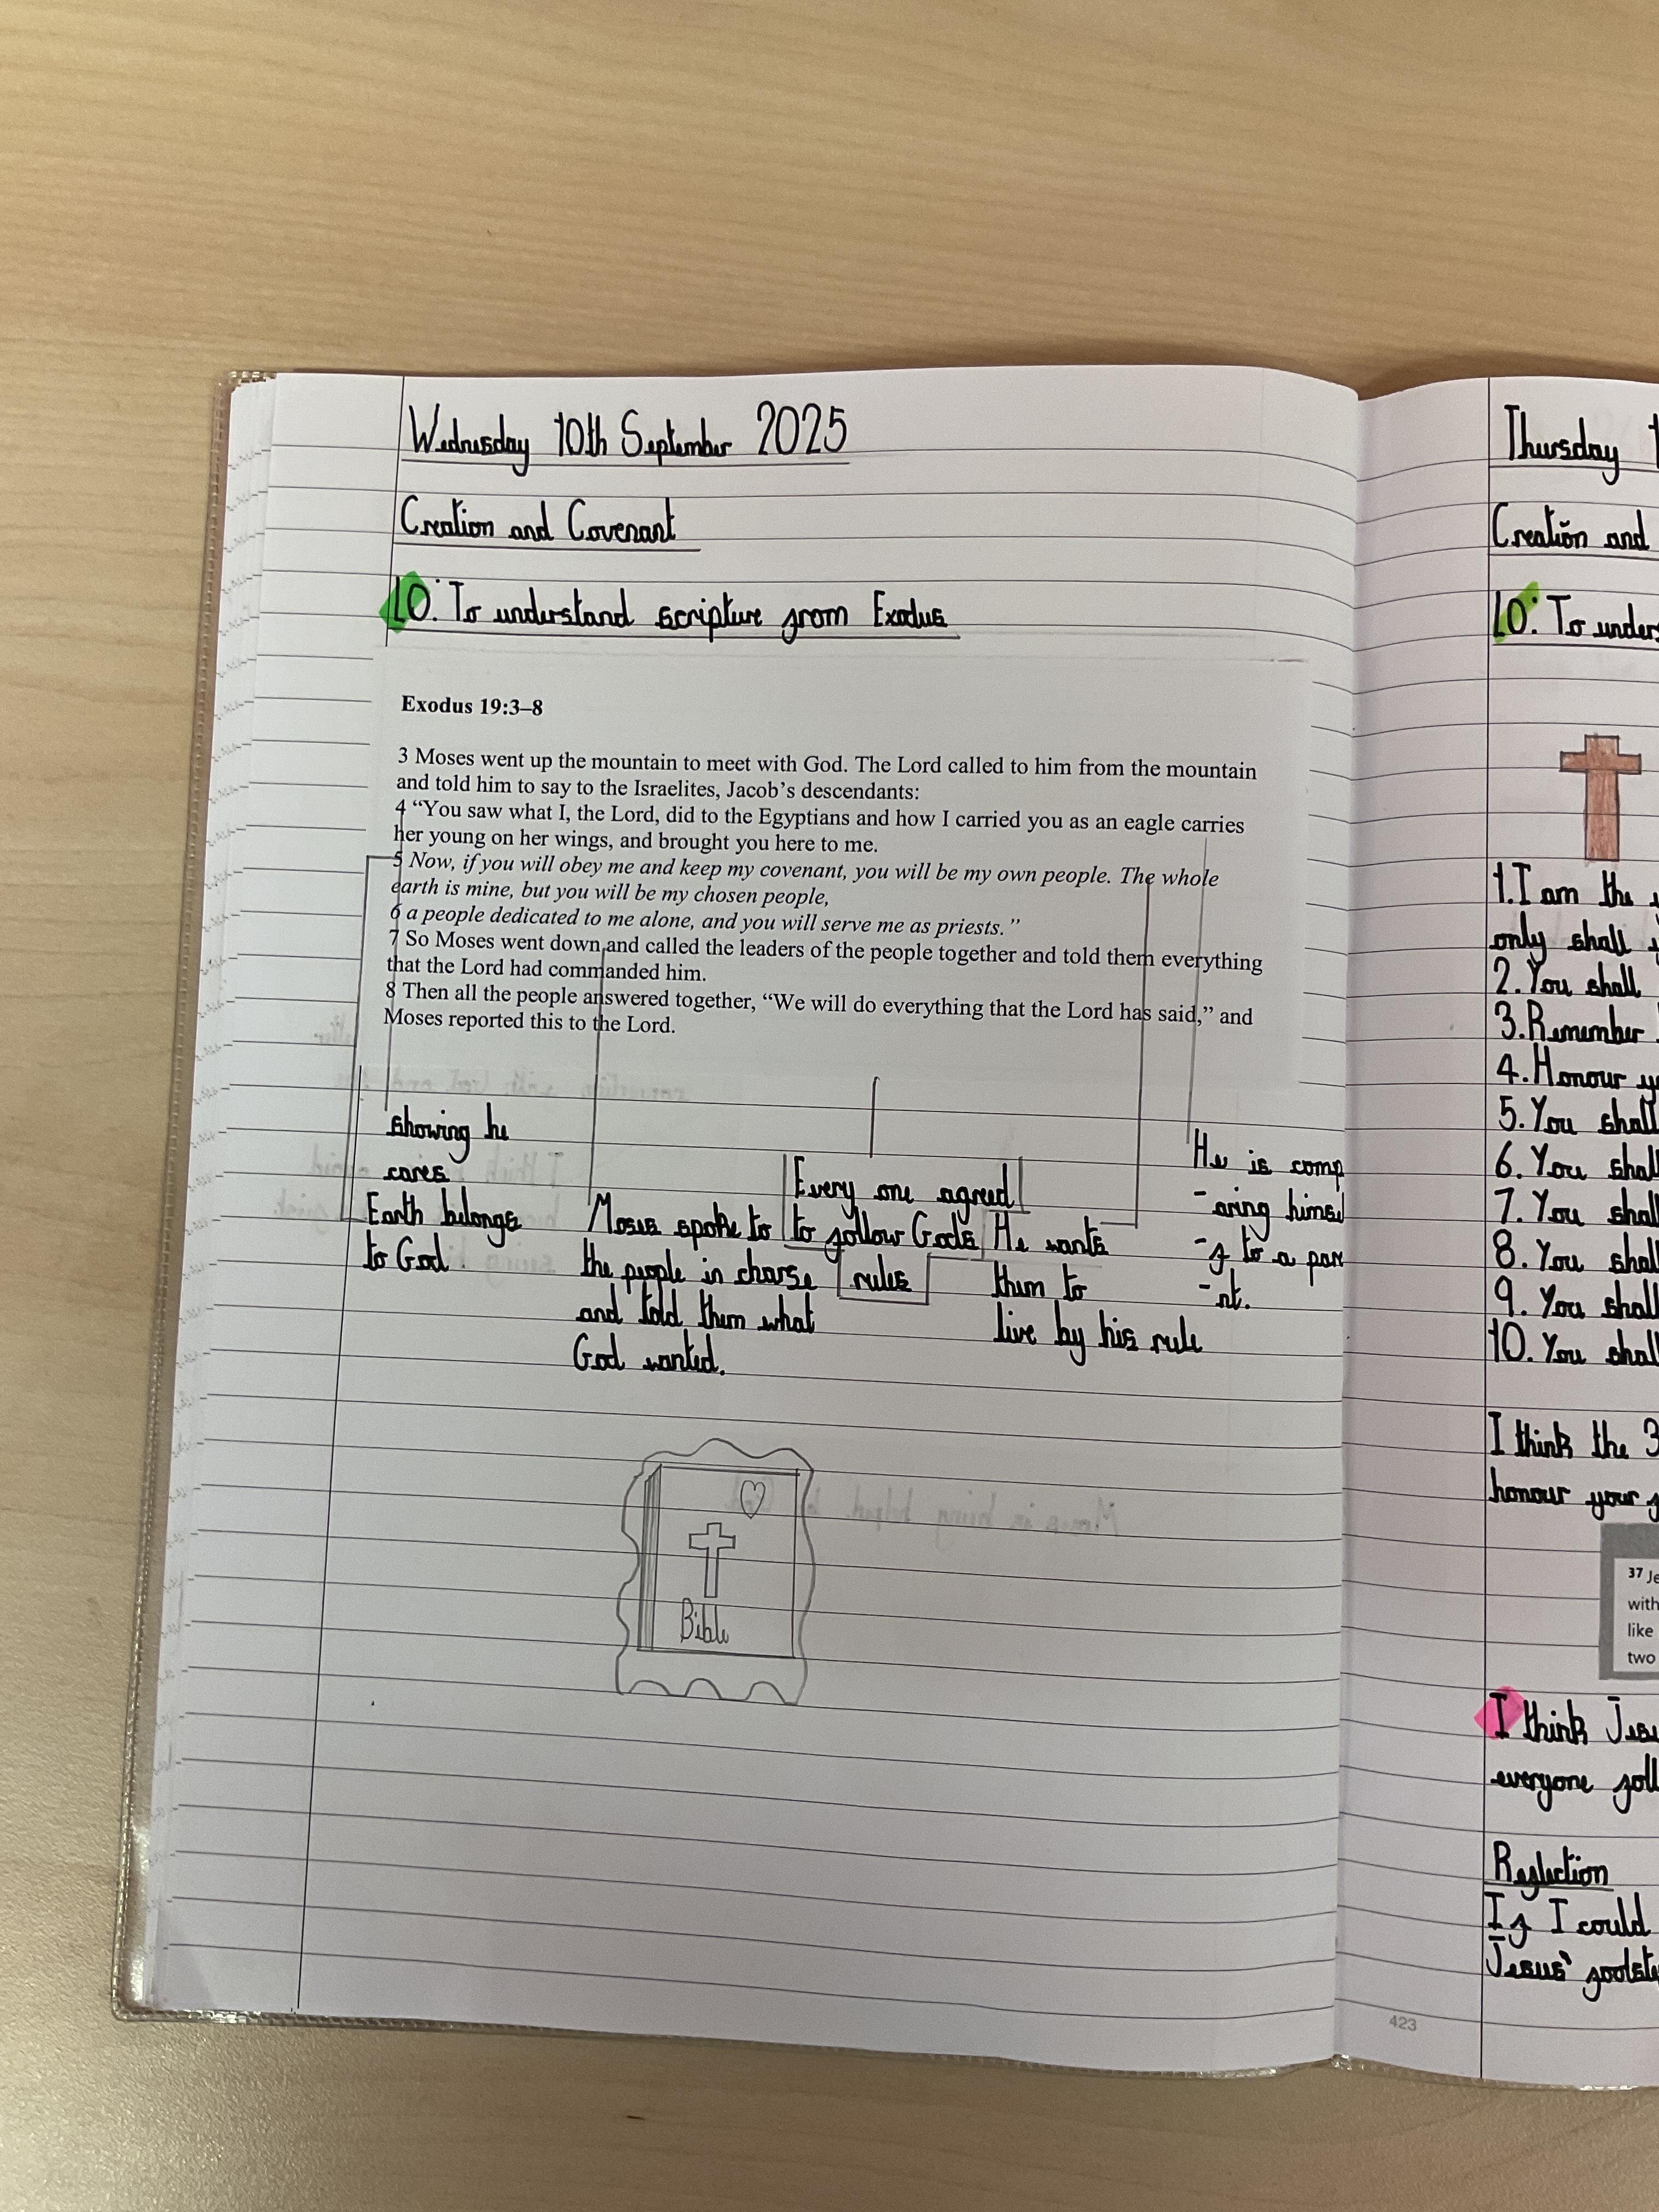 Wednesday 10th September 2025
Creation and Covenant
LO: To understand scripture from Exodus
Exodus 19:3–8
3 Moses went up the mountain to meet with God. The Lord called to him from the mountain
and told him to say to the Israelites, Jacob's descendants:
4 “You saw what I, the Lord, did to the Egyptians and how I carried you as an eagle carries
her young on her wings, and brought you here to me.
5 Now, if you will obey me and keep my covenant, you will be my own people. The whole
earth is mine, but you will be my chosen people,
6 a people dedicated to me alone, and you will serve me as priests.”
7 So Moses went down and called the leaders of the people together and told them everything
that the Lord had commanded him.
8 Then all the people answered together, “We will do everything that the Lord has said,” and
Moses reported this to the Lord.
showing he
cares
Earth belongs
to God
Moses spoke to
the people in charge
and told them what
God wanted.
Every one agreed
to follow Gods
rules
He wants
them to
live by his rule
He is comp
-aring himsel
-f to a pare
-nt.
Bible
Thursday
Creation and
LO: To
1. I am the
only shall
2. You shall
3. Remember
4. Honour
5. You shall
6. You shall
7. You shall
8. You shall
9. You shall
10. You shall
I think the 3
honour your
37
with
like
two
I think
everyone
Reflection
If I could
Jesus'
423